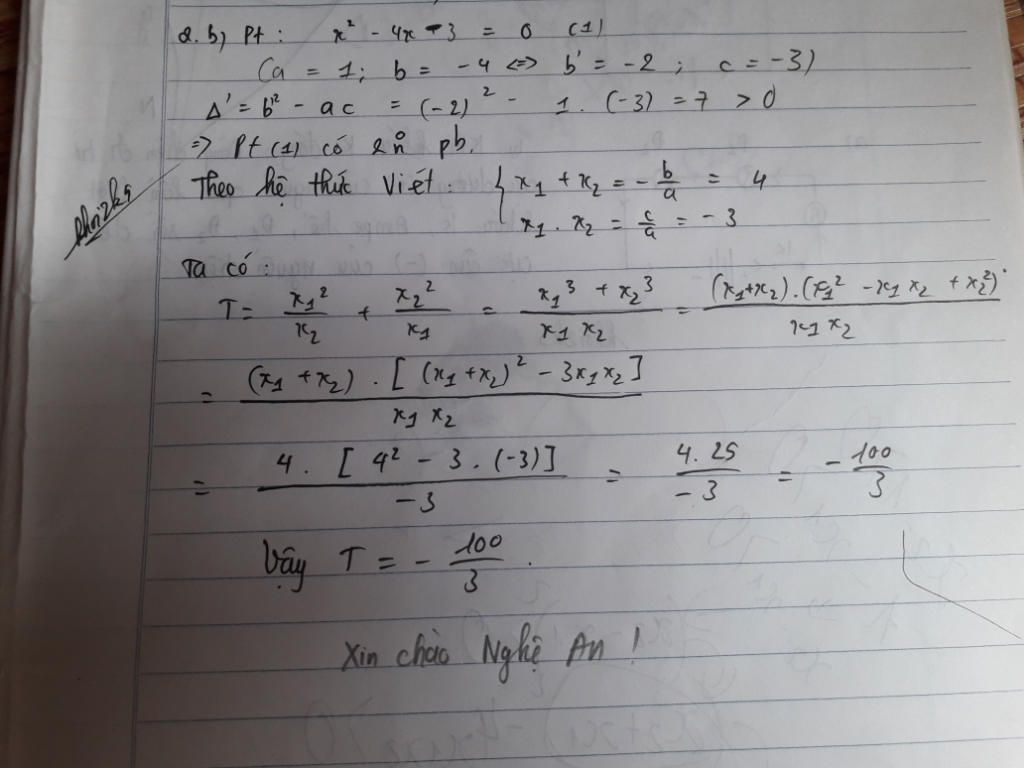 2. b) Pt: x² - 4x - 3 = 0 (1)
(a = 1; b = -4 <=> b' = -2; c = -3)
Δ' = b'² - ac = (-2)² - 1.(-3) = 7 > 0
=> Pt (1) có 2 n₀ pb.
Theo hệ thức Viét: { x₁ + x₂ = - b/a = 4
x₁ . x₂ = c/a = -3
Ta có:
T = x₁²/x₂ + x₂²/x₁ = (x₁³ + x₂³)/(x₁ x₂) = (x₁+x₂).(x₁² - x₁ x₂ + x₂²)/(x₁ x₂)
= (x₁ + x₂) . [(x₁+x₂)² - 3x₁x₂]/(x₁ x₂)
= 4 . [4² - 3 . (-3)]/(-3) = 4.25/(-3) = - 100/3
Vậy T = - 100/3 .
Xin chào Nghệ An !